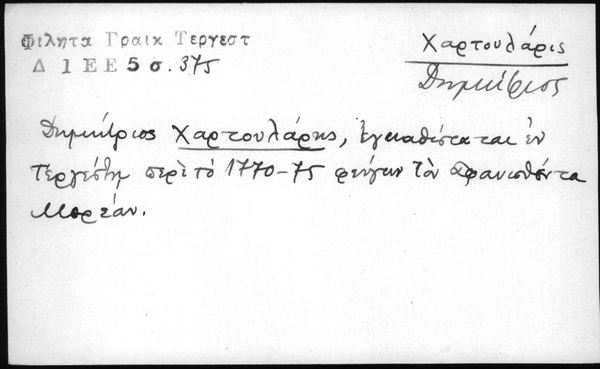 Φιλητα Γραικ Τεργεστ
Δ 1 Ε Ε 5 σ. 375
Χαρτουλάρις
Δημήτριος
Δημήτριος Χαρτουλάρης, ἐγκαθίσταται ἐν
Τεργέστῃ περὶ τὸ 1770-75 φεύγων τὸν ἀφανισθέντα
Μορέαν.